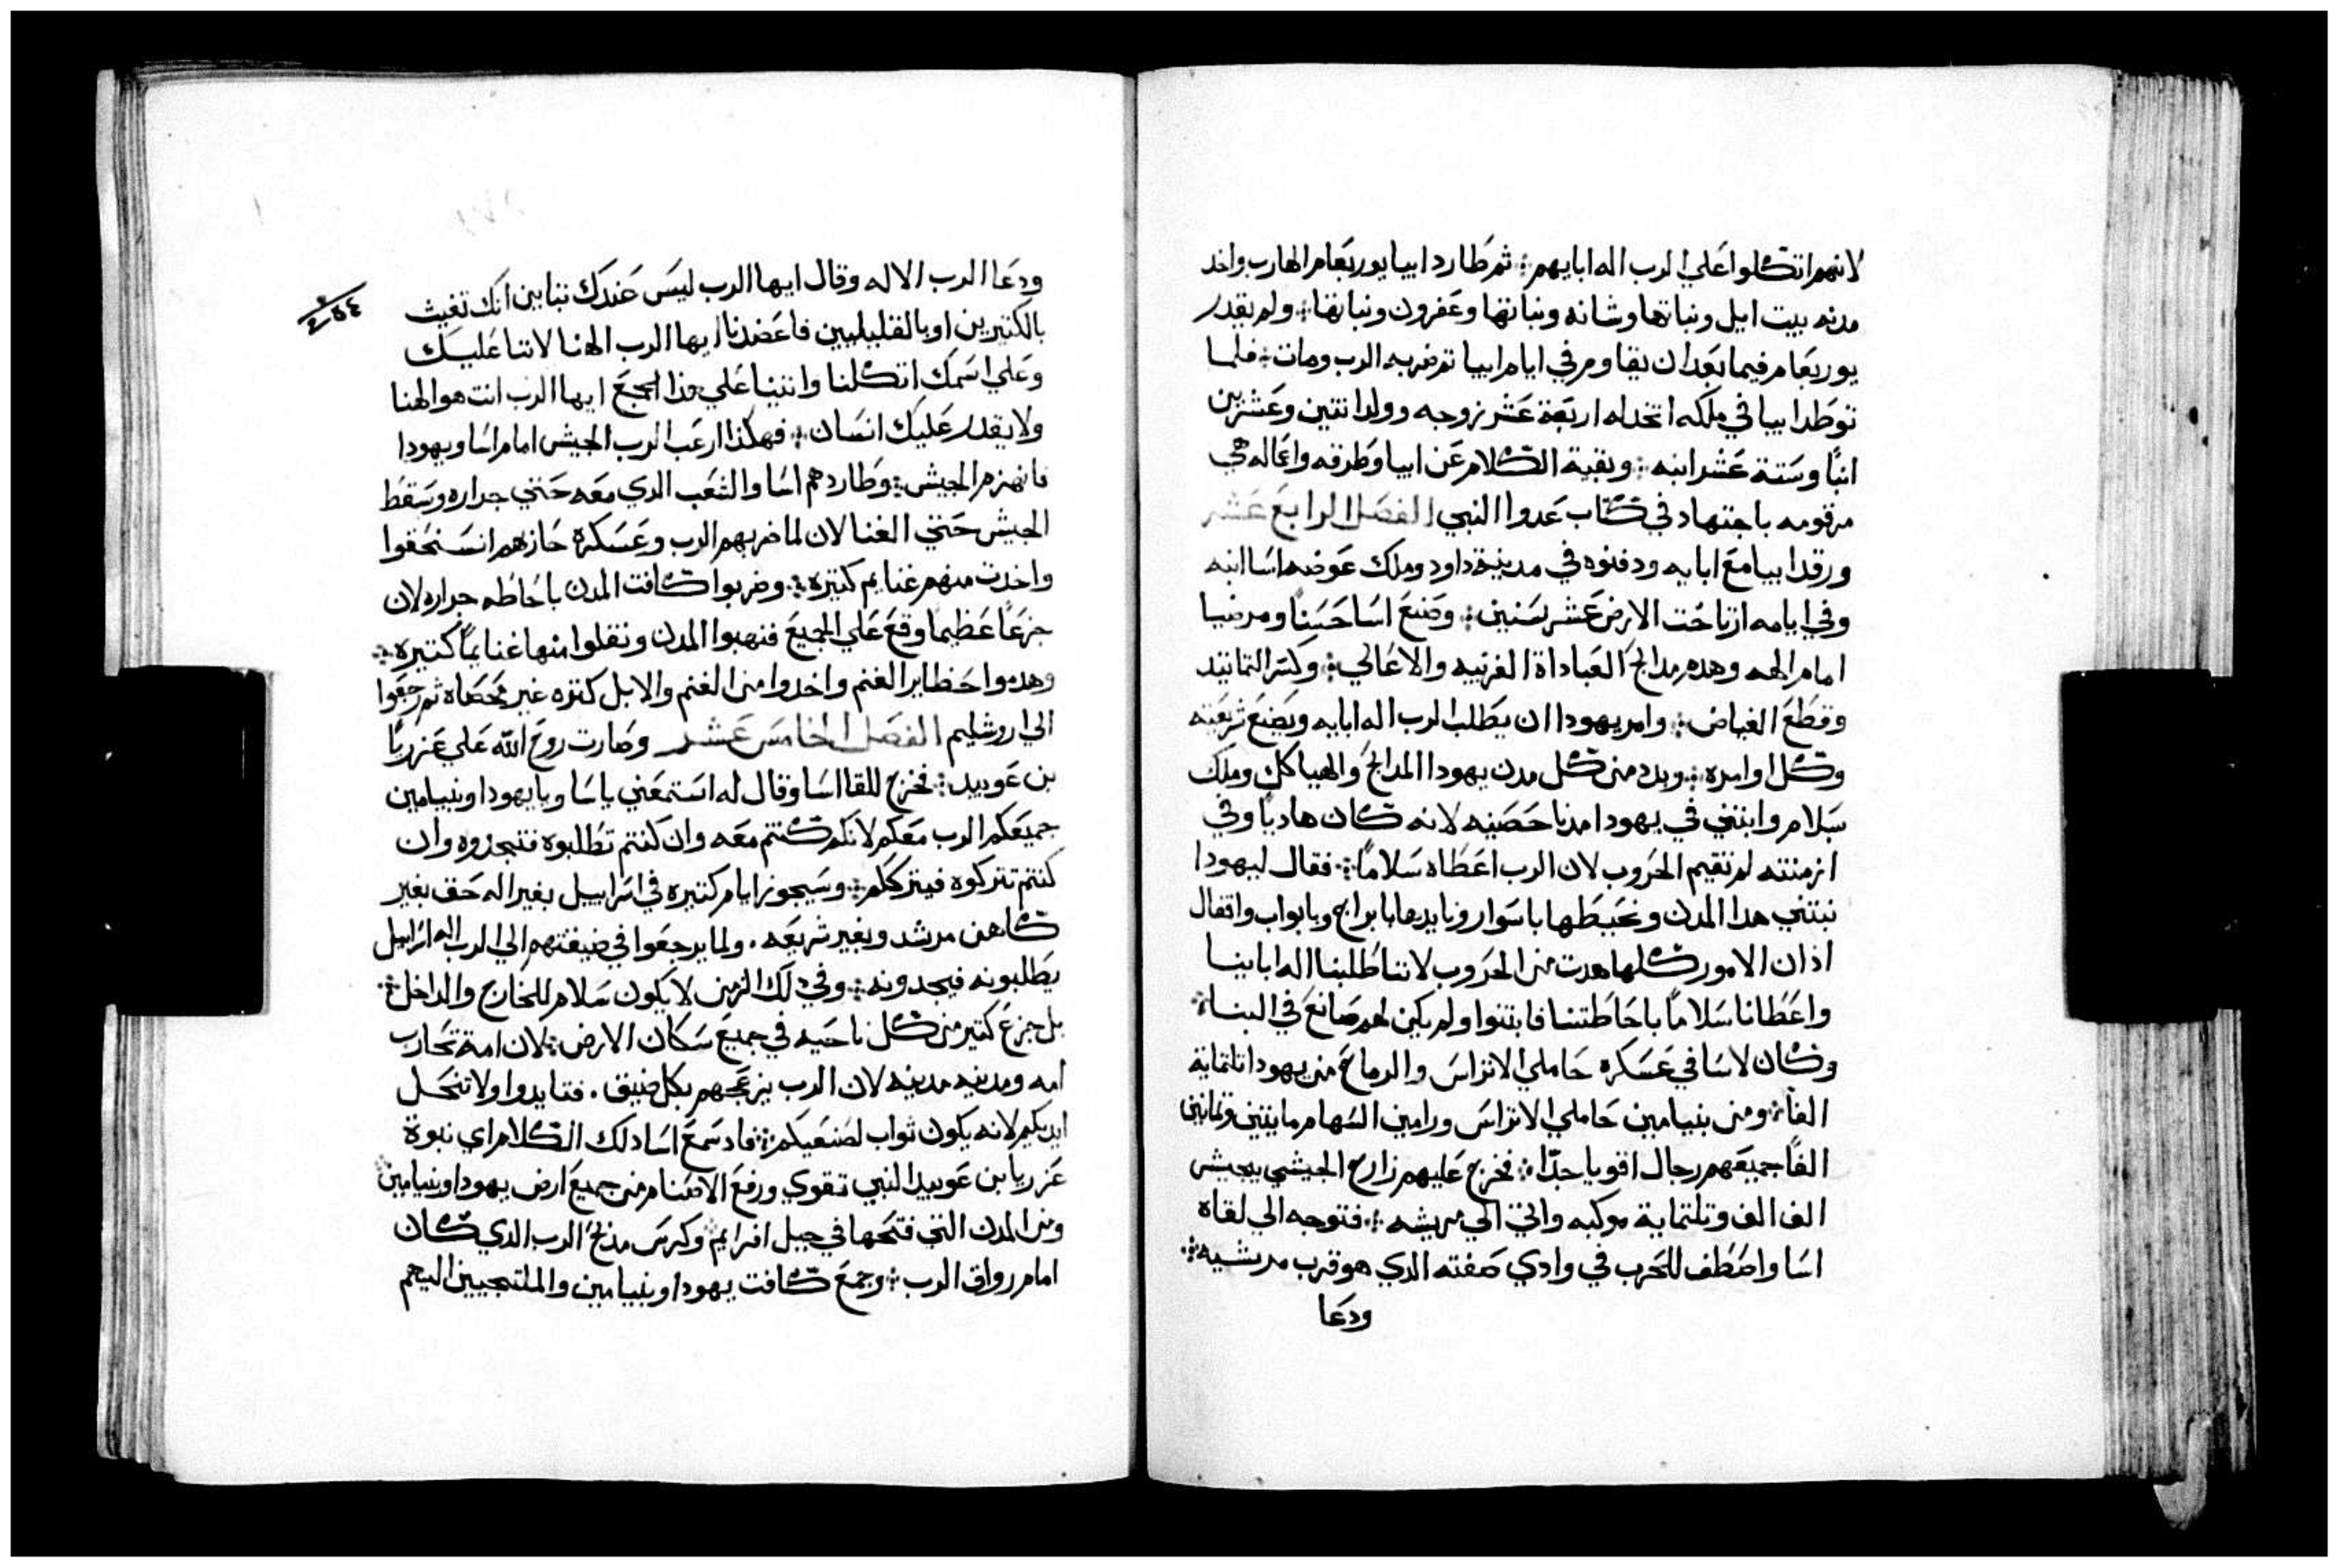 لانهم اتكلوا علي الرب اله ابايهم ܀ ثم طارد ابيا يوربعام الهارب واخد
مدنه بيت ايل وبناتها وشانه وبناتها وعفرون وبناتها ܀ ولم يقدر
يوربعام فيما بعد ان يقاوم في ايام ابيا ثم ضربه الرب ومات ܀ فلما
توطد ابيا في ملكه اتخد له اربعة عشر زوجه وولد اتنين وعشرين
ابنًا وستة عشر ابنه ܀ وبقية الكلام عن ابيا وطرقه واعماله هي
مرقومه باجتهاد في كتاب عدوا النبي الفصل الرابع عشر
ورقد ابيا مع ابايه ودفنوه في مدينة داود وملك عوضه اسا ابنه
وفي ايامه ارتاحت الارض عشر سنين ܀ وصنع اسا حسنًا ومرضيا
امام الهه وهدم مدابح العباداة الغريبه والاعالي ܀ وكسر التماتيد
وقطع الغياض ܀ وامر يهودا ان يطلب الرب اله ابايه ويصنع شريعته
وكل اوامره ܀ وبدد من كل مدن يهودا المدابح والهياكل وملك
بسلام وابتني في يهودا مدنا حصينه لانه كان هاديًا وفي
ازمنته لم تقيم الحروب لان الرب اعطاه سلامًا ܀ فقال ليهودا
نبتني هدا المدن ونحيطها باسوار ونايدها بابراج وبابواب واقفال
اذ ان الامور كلها هدت من الحروب لاننا طلبنا اله ابابنا
واعطانا سلامًا باحاطتنا فابتنوا ولم يكن لهم صانع في البنا ܀
وكان لاسا في عسكره حاملي الاتراس والرماح من يهودا تلتماية
الفا ܀ ومن بنيامين حاملي الاتراس ورامين السهام مايتين وتمانين
الفًا جميعهم رجال اقويا جدًا ܀ فخرج عليهم زارح الحبشي بجيش
الف الف وتلتماية موكبه واتي الي مريشه ܀ فتوجه الي لقاه
اسا واصطف للحرب في وادي صفته الدي هو قرب مريشيه ܀
ودعا
٤٥٤
ودعا الرب الاله وقال ايها الرب ليس عندك تباين انك تغيث
بالكتيرين او بالقليليين فاعضدنا ايها الرب الهنا لاننا عليك
وعلي اسمك اتكلنا واتينا علي هذا الجمع ايها الرب انت هو الهنا
ولا يقدر عليك انسان ܀ فهكذا ارعب الرب الجيش امام اسا ويهودا
فانهزم الجيش ܀ وطاردهم اسا والشعب الدي معه حتي جراره وسقط
الجيش حتي الفنا لان لما ضربهم الرب وعسكره حازهم انسحقوا
واخدت منهم غنايم كتيره ܀ وضربوا كافت المدن باحاطه جراره لان
جزعًا عظيما وقع علي الجميع فنهبوا المدن ونقلوا منها غنايمًا كتيره ܀
وهدموا حظاير الغنم واخدوا من الغنم والابل كتره غير محصاه ثم رجعوا
الي اروشليم الفصل الخامس عشر وصارت روح الله علي عزريًا
بن عوبيد ܀ فخرج للقا اسا وقال له استمعني ياسا ويا يهودا وبنيامين
جميعكم الرب معكم لانكم كنتم معه وان كنتم تطلبوه فتجدوه وان
كنتم تتركوه فيترككم ܀ وسيجوز ايام كتيره في اسراييل بغير اله حق بغير
كاهن مرشد وبغير شريعه. ولما يرجعوا في ضيقتهم الي الرب اله اسراييل
يطلبونه فيجدونه ܀ وفي دلك الزمن لا يكون سلام للخارج والداخل ܀
بل جزع كتير من كل ناحيه في جميع سكان الارض ܀ لان امة تحارب
امه ومدينه مدينه لان الرب يزعجهم بكل ضيق. فتايدوا ولا تنحل
ايديكم لانه يكون ثواب لصنعيكم ܀ فاد سمع اسا دلك الكلام اي نبوة
عزريا بن عوبيد النبي تقوي ورفع الاصنام من جميع ارض يهودا وبنيامين
ومن المدن التي فتحها في جبل افرايم وكرس مذبح الرب الدي كان
امام رواق الرب ܀ وجمع كافت يهودا وبنيامين والملتجيين اليهم